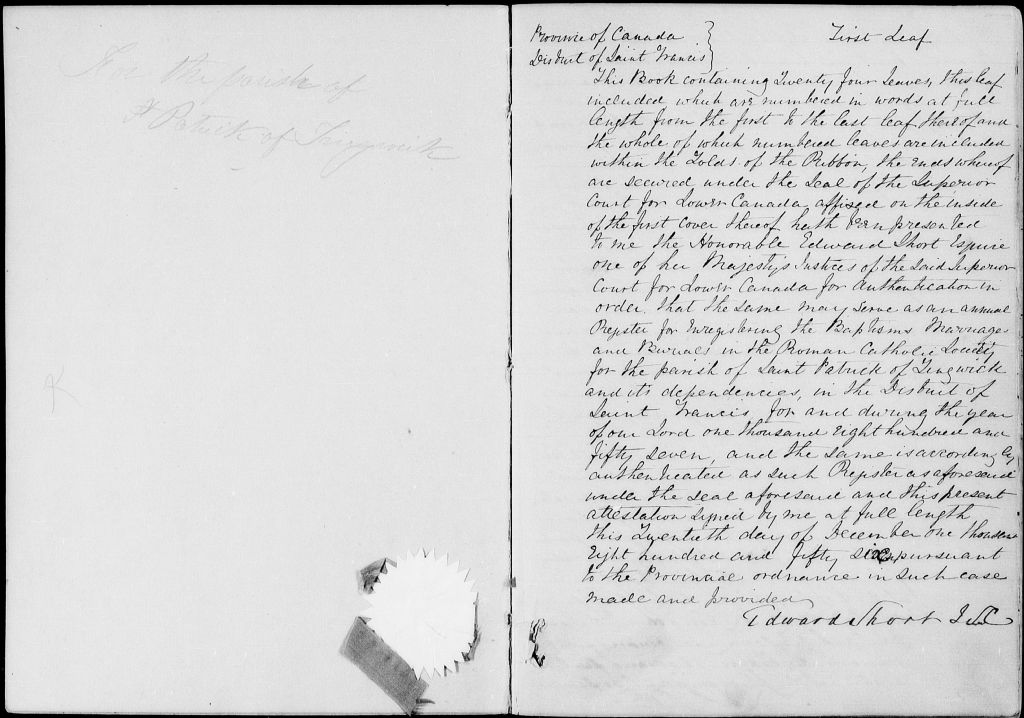 For the parish of
St Patrick of Tingwick
Province of Canada
District of Saint Francis
First Leaf
This Book containing Twenty four leaves, this leaf
included which are numbered in words at full
length from the first to the last leaf thereof and
the whole of which numbered leaves are included
within the folds of the Ribbon, the ends whereof
are secured under the Seal of the Superior
Court for Lower Canada affixed on the inside
of the first cover thereof hath been presented
to me the Honorable Edward Short Esquire
one of her Majesty's Justices of the said Superior
Court for Lower Canada for authentication in
order that the same may serve as an annual
Register for Enregistering the Baptisms Marriages
and Burials in the Roman Catholic Society
for the parish of Saint Patrick of Tingwick
and its dependencies, in the District of
Saint Francis, for and during the year
of our Lord one thousand Eight hundred and
fifty seven, and the same is accordingly
authenticated as such Register as aforesaid
under the seal aforesaid and this present
attestation signed by me at full length
this Twentieth day of December one thousand
Eight hundred and fifty six, pursuant
to the Provincial ordnance in such case
made and provided
Edward Short J.S.C